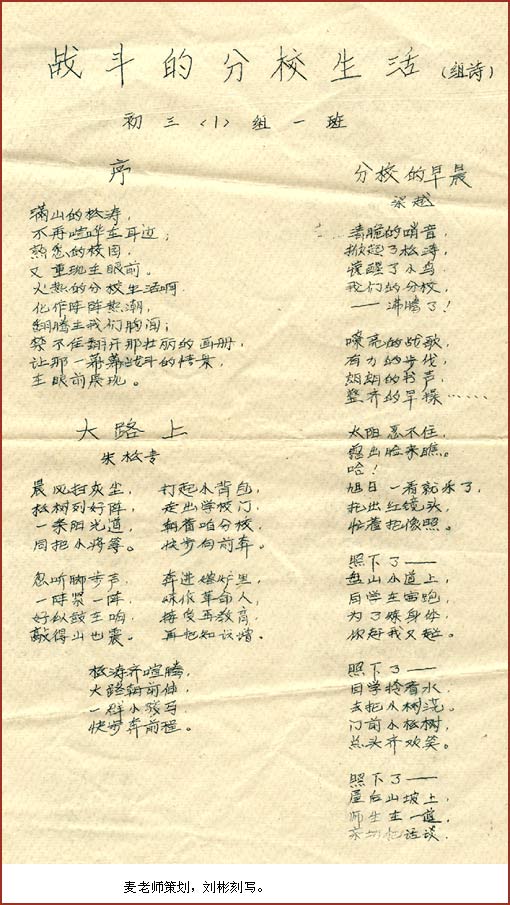 战斗的分校生活(组诗)
初三<1>组一班
序
满山的松涛,
不再喧哗在耳边;
熟悉的校园,
又重现在眼前。
火热的分校生活啊
化作阵阵热潮,
翻腾在我们胸间;
禁不住翻开那壮丽的画册,
让那一幕幕战斗的情景,
在眼前展现。
大路上
朱松
晨风扫灰尘,
松树列好阵,
一条阳光道,
同把小将等。
打起小背包,
走出学校门,
朝着咱分校,
快步向前奔。
忽听脚步声,
一阵紧一阵,
好似鼓在响,
敲得山也震。
奔进熔炉里,
炼作革命人,
接受再教育,
再把知识增。
松涛齐喧腾,
大路朝前伸,
一群小骏马,
快步奔前程。
分校的早晨
梁越
清脆的哨音,
掀起了松涛,
醒了小鸟.
我们的分校
——沸腾了!
嘹亮的战歌,
有力的步伐,
朗朗的书声,
整齐的早操……
太阳忍不住,
露出脸来瞧。
哈!
旭日一看就乐了,
托出红镜头,
忙着把像照。
照下了——
盘山小道上,
同学在跑,
为了炼身体,
你赶我又超。
照下了——
同学拎着水,
去把小树浇。
门前小松树,
点头齐欢笑。
照下了——
屋后山坡上,
师生在一道,
把话谈.
麦老师策划，刘彬刻写。